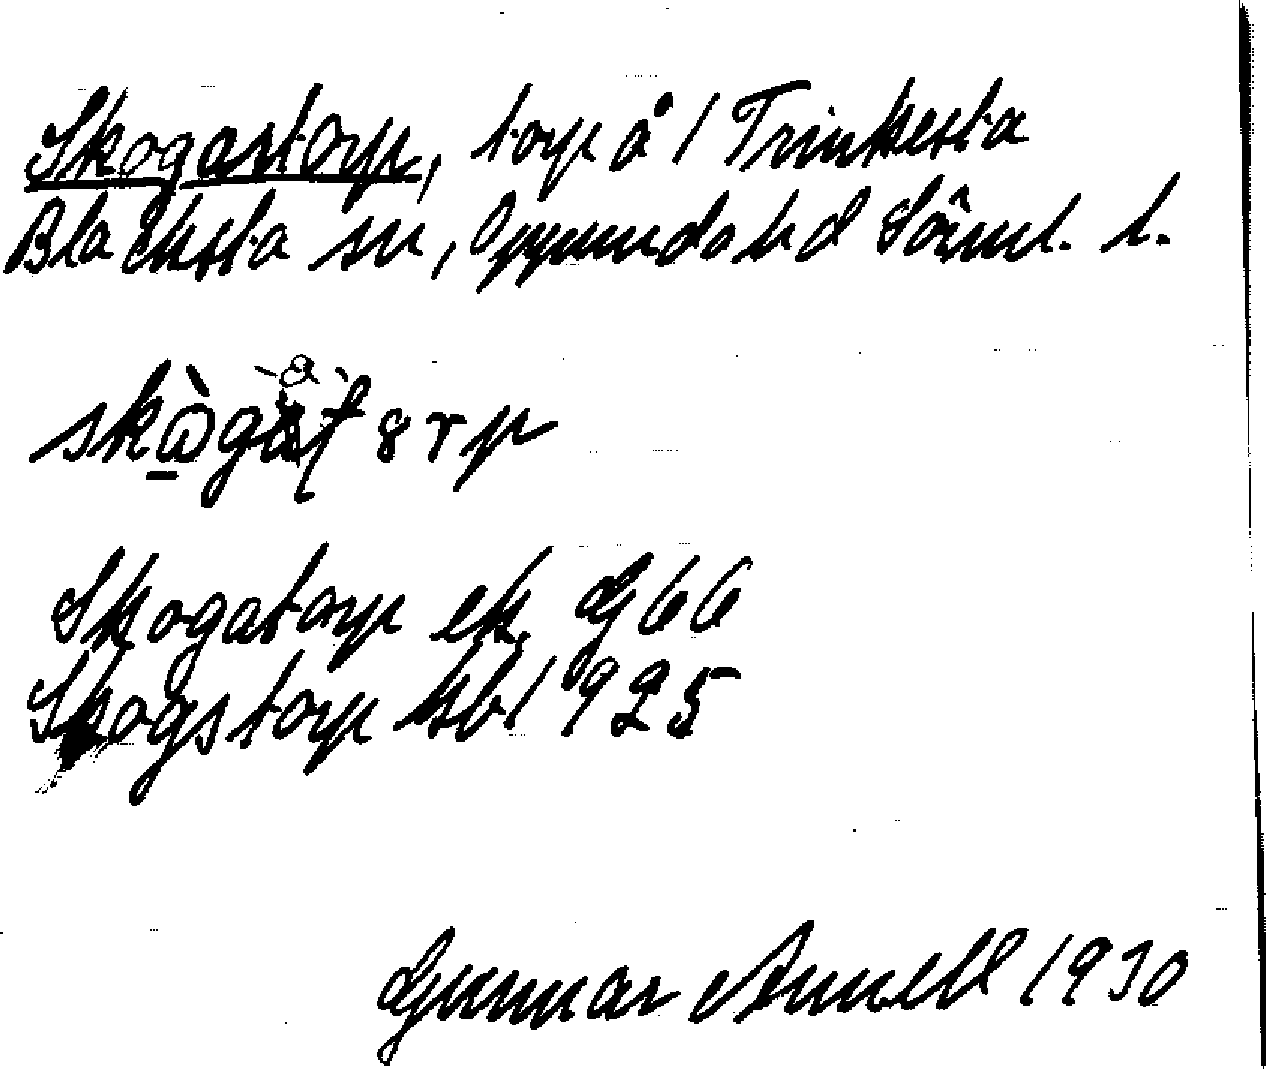 Skogastorp, torp å / Trinkesta
Bläcksta sn, Oppunda hd Söml. l.
Skogatorp ek. G 66
Skogstorp kb 1925
Gunnar Annell 1930